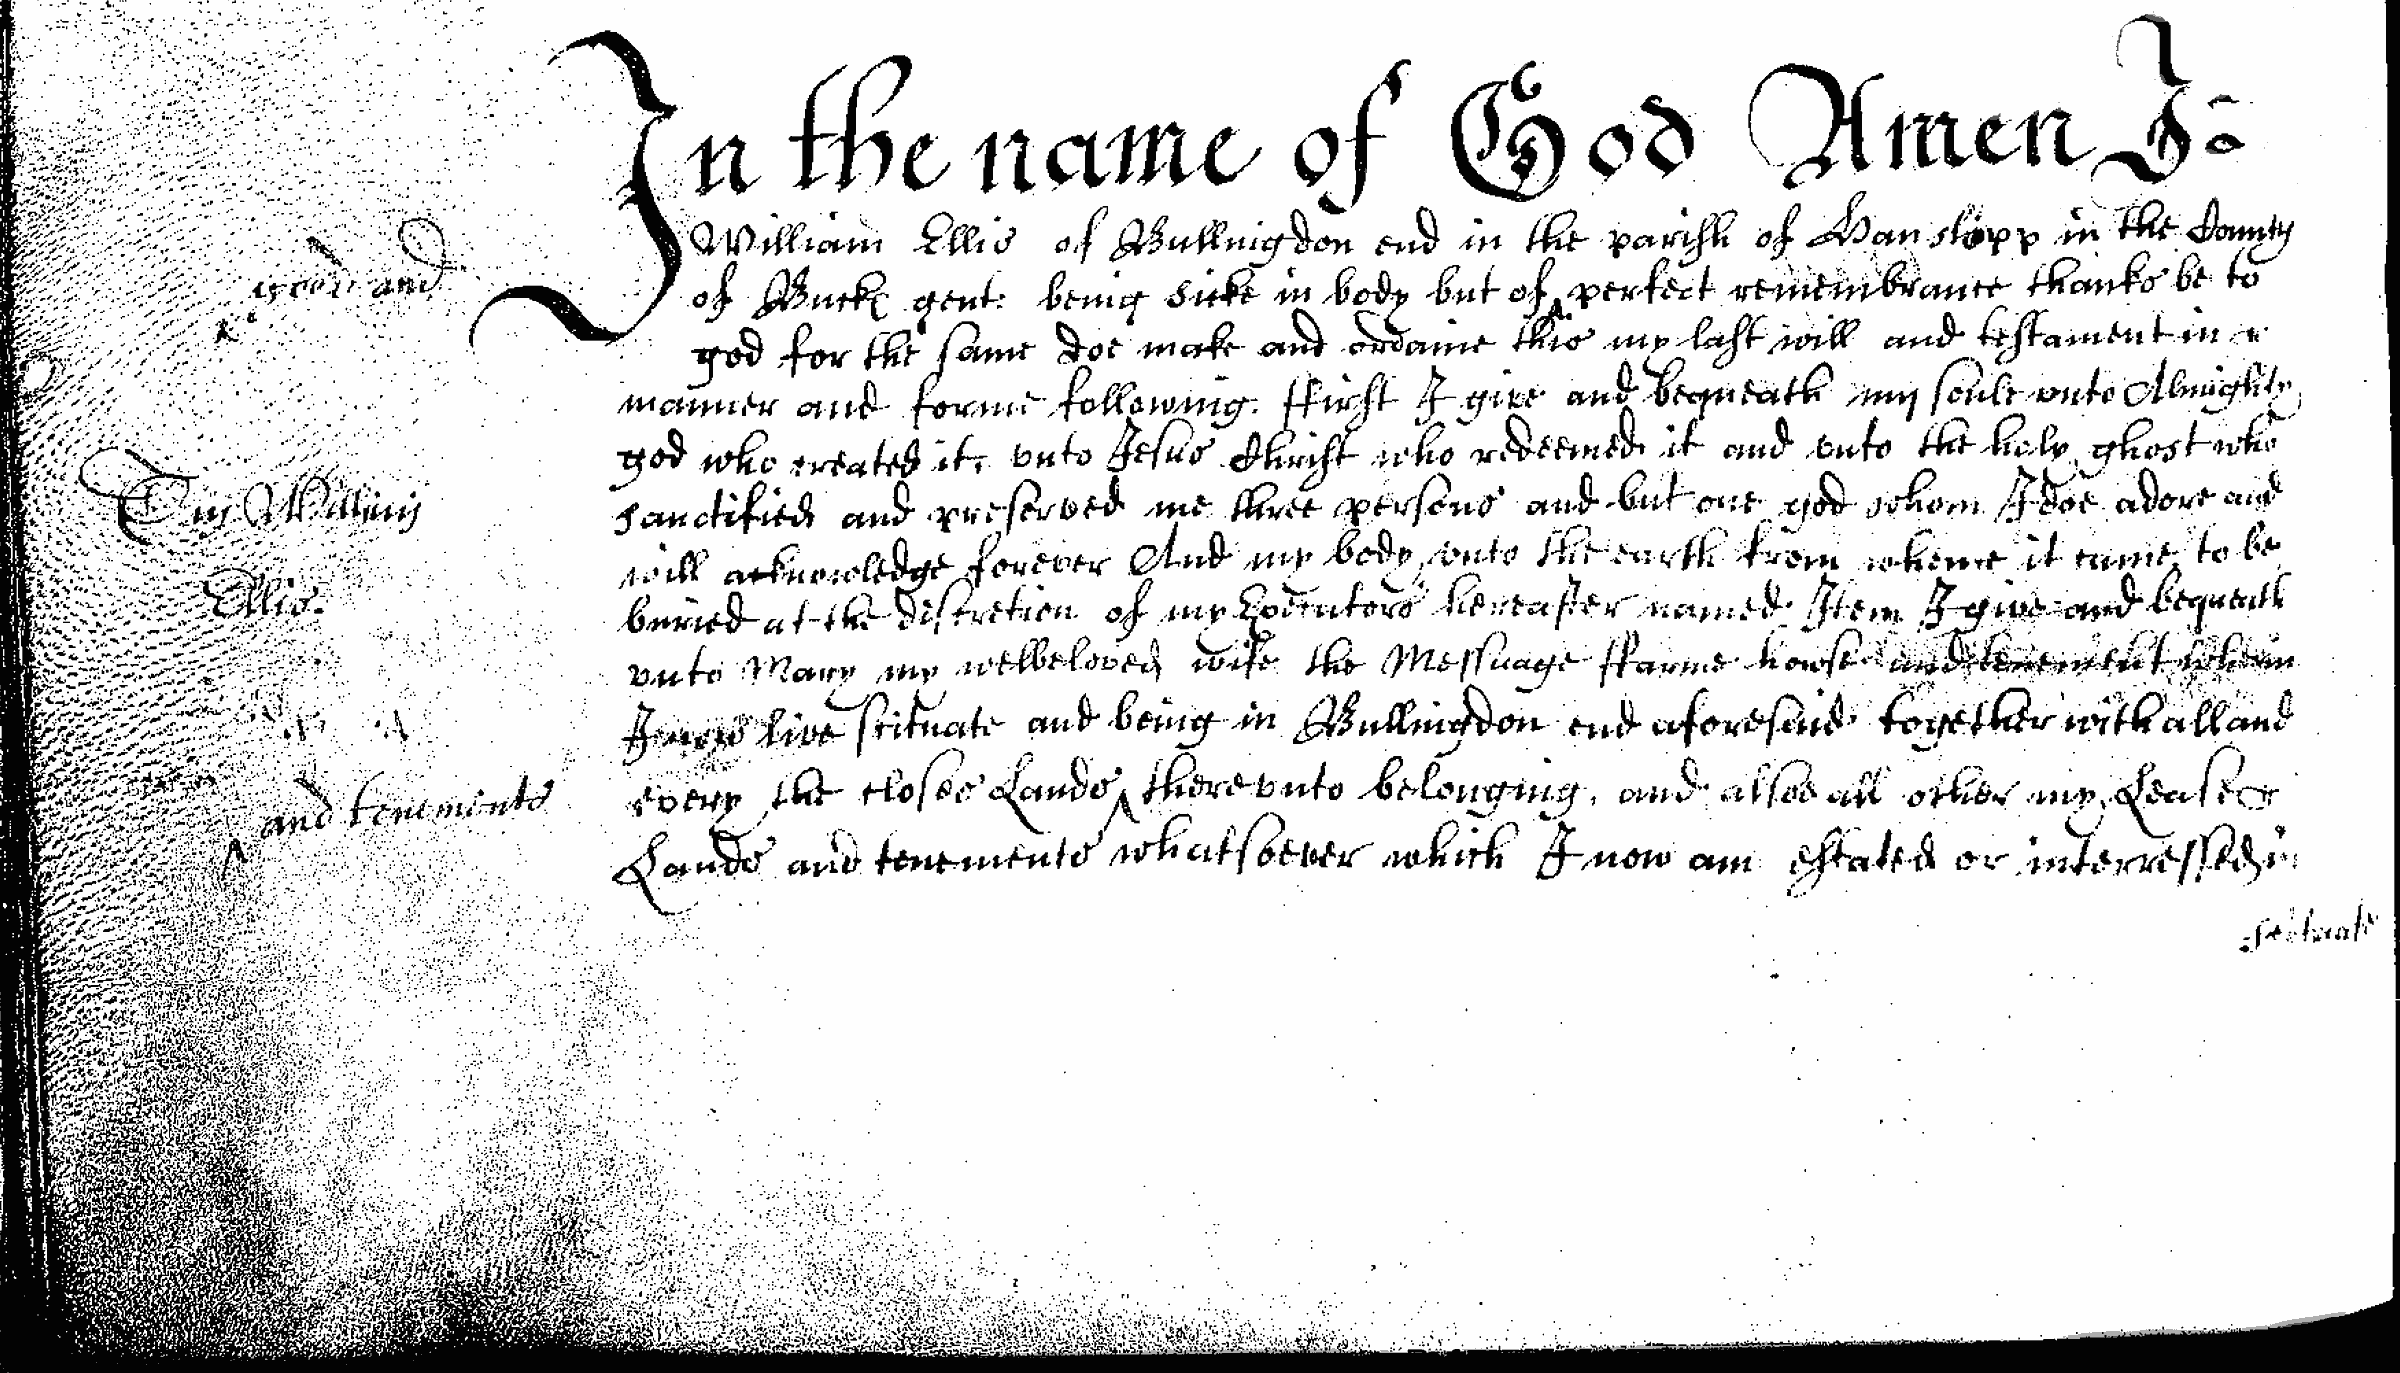 In the name of God Amen I
William Ellis of Bullingdon end in the parish of Hanslopp in the County
good and
of Buck gent: being sicke in body but of perfect remembrance thanks be to
god for the same doe make and ordaine this my last will and testament in
manner and forme following. ffirst I give and bequeath my soule vnto Almighty
god who created it, vnto Jesus Christ who redeemed it and vnto the holy ghost who
Willimi
sanctified and preserved me three persons and but one god whom I doe adore and
will acknowledge forever And my body vnto the earth from whence it came to be
Ellis.
buried at the discretion of my Executors hereafter named Item I give and bequeath
vnto Mary my welbeloved wife the Messuage ffarme howse and tenement wherin
I now live scituate and being in Bullingdon end aforesaid together with all and
and tenements
every the closes Lands therevnto belonging, and alsoe all other my Leases
Lands and tenements whatsoever which I now am estated or interressed in